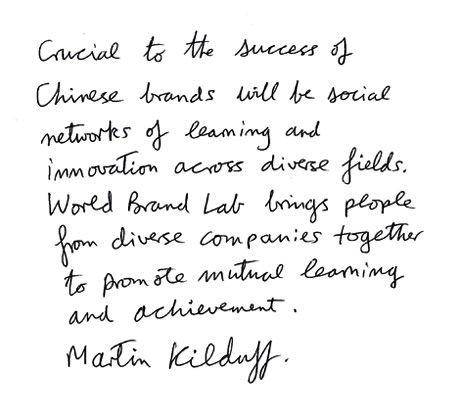 Crucial to the success of
Chinese brands will be social
networks of learning and
innovation across diverse fields.
World Brand Lab brings people
from diverse companies together
to promote mutual learning
and achievement.
Martin Kilduff.